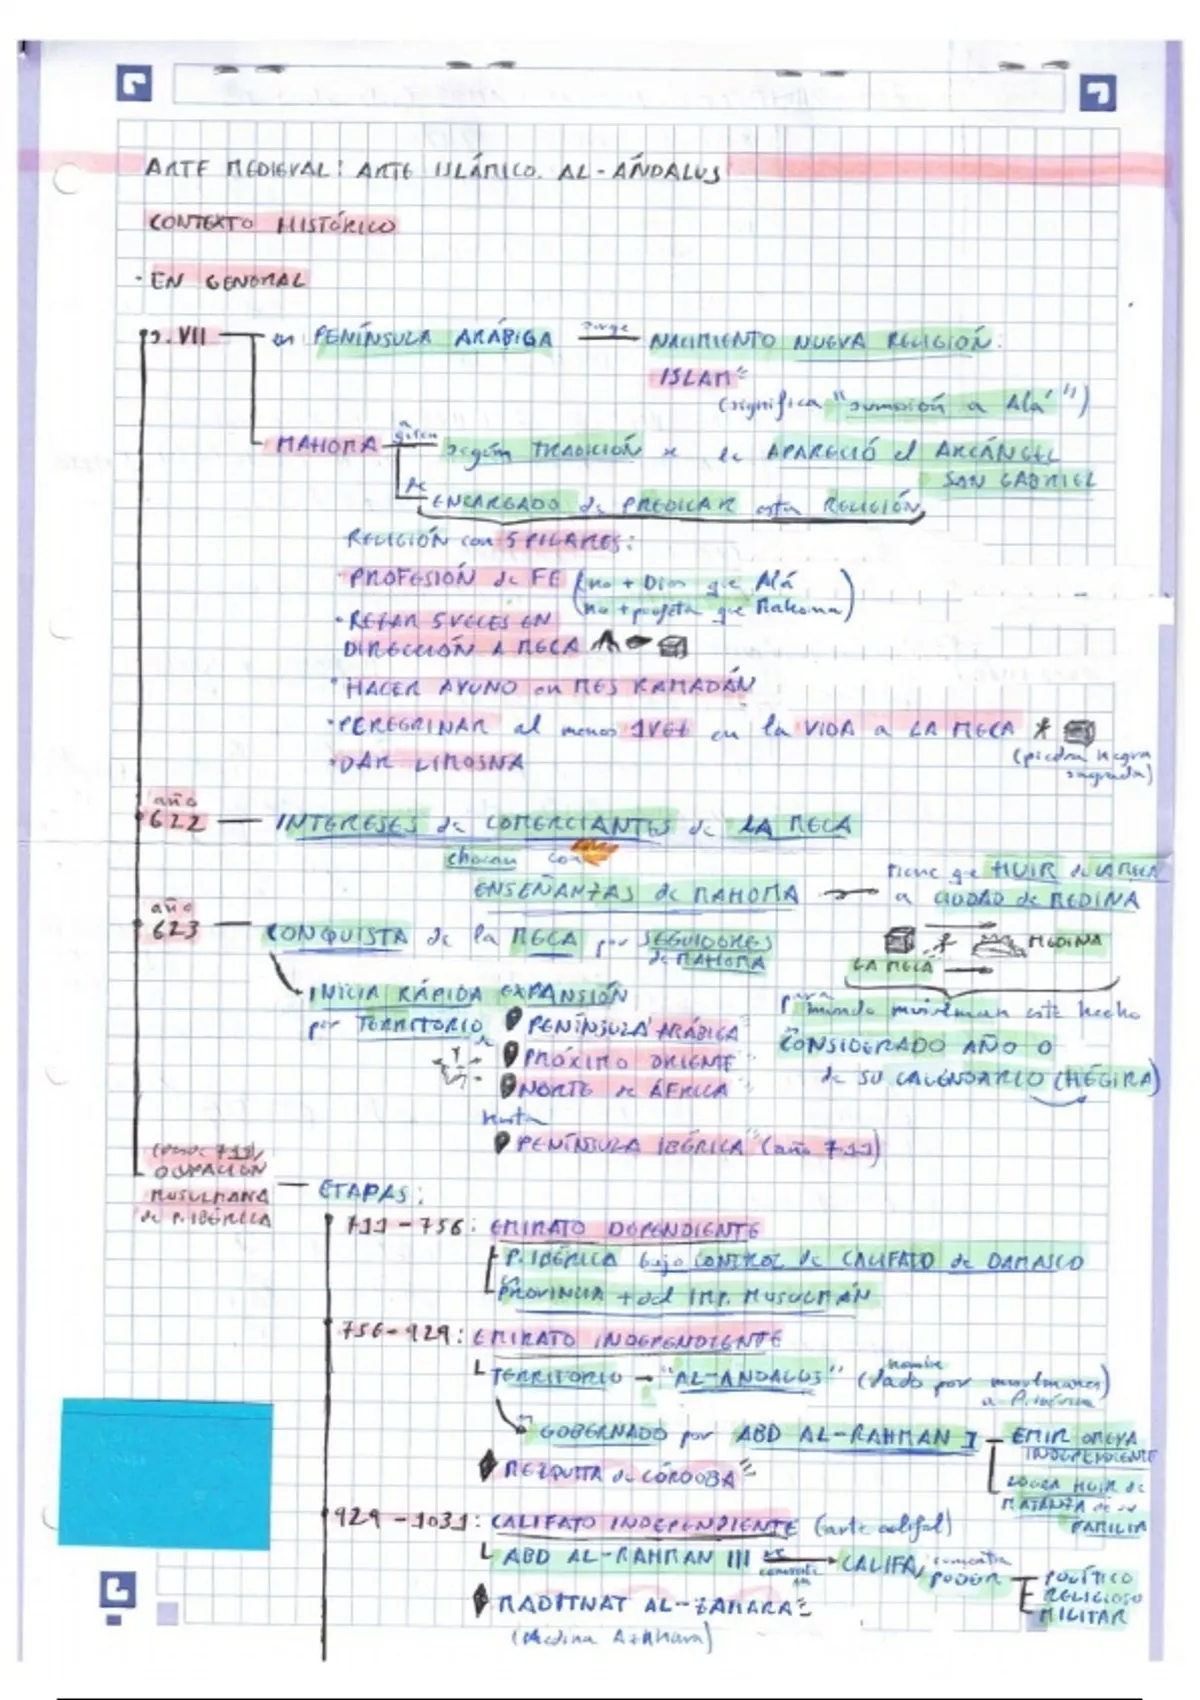 ARTE MEDIEVAL: ARTE ISLÁMICO. AL-ÁNDALUS
CONTEXTO HISTÓRICO
· EN GENERAL
S. VII — en PENÍNSULA ARÁBIGA surge NACIMIENTO NUEVA RELIGIÓN:
ISLAM
(significa "sumisión a Alá")
MAHOMA según TRADICIÓN se le APARECIÓ el ARCÁNGEL
SAN GABRIEL
ENCARGADO de PREDICAR esta RELIGIÓN
RELIGIÓN con 5 PILARES:
· PROFESIÓN de FE (no + Dios que Alá
no + profeta que Mahoma)
· REZAR 5 VECES EN
DIRECCIÓN A MECA
· HACER AYUNO en MES RAMADÁN
· PEREGRINAR al menos 1 VEZ en la VIDA a LA MECA
(piedra negra
sagrada)
· DAR LIMOSNA
año
622 — INTERESES de COMERCIANTES de LA MECA
chocan con
ENSEÑANZAS de MAHOMA → tiene que HUIR de LA MECA
a CIUDAD de MEDINA
año
623 — CONQUISTA de la MECA por SEGUIDORES
de MAHOMA
LA MECA → MEDINA
INICIA RÁPIDA EXPANSIÓN
por TERRITORIO de
PENÍNSULA ARÁBIGA
PRÓXIMO ORIENTE
NORTE de ÁFRICA
hasta
PENÍNSULA IBÉRICA (año 711)
para mundo musulman este hecho
CONSIDERADO AÑO 0
de SU CALENDARIO (HÉGIRA)
(desde 711)
OCUPACIÓN
MUSULMANA
de P. IBÉRICA — ETAPAS:
711-756: EMIRATO DEPENDIENTE
P. IBÉRICA bajo CONTROL de CALIFATO de DAMASCO
PROVINCIA + del IMP. MUSULMÁN
756-929: EMIRATO INDEPENDIENTE
TERRITORIO → "AL-ANDALUS" (nombre dado por musulmanes
a P. ibérica)
GOBERNADO por ABD AL-RAHMAN I
EMIR OMEYA
INDEPENDIENTE
LOGRA HUIR de
MATANZA de su
FAMILIA
MEZQUITA de CÓRDOBA
929-1031: CALIFATO INDEPENDIENTE (arte califal)
ABD AL-RAHMAN III se convierte en → CALIFA, concentra
PODER
POLÍTICO
RELIGIOSO
MILITAR
MADITNAT AL-ZAHARA
(Medina Azahara)